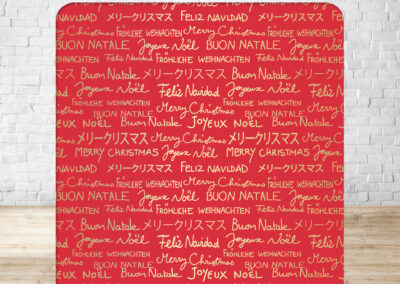 NAVIDAD メリークリスマス FELIZ NAVIDAD
FRÖHLICHE WEIHNACHTEN Merry Christmas
BUON NATALE Joyeux Noël BUON NATALE Joyeux
WEIHNACHTEN Feliz Navidad FRÖHLICHE WEIHNACHTEN
Buon Natale メリークリスマス Buon Natale メリー
Joyeux Noël Feliz Navidad Joyeux Noël
FRÖHLICHE WEIHNACHTEN Merry Christmas FRÖHLICHE WEIHNACHTEN
Merry Christmas BUON NATALE Merry Christmas BUON
JOYEUX NOËL Feliz Navidad JOYEUX NOËL
メリークリスマス Merry Christmas メリークリスマス
MERRY CHRISTMAS Joyeux Noël MERRY CHRISTMAS
NAVIDAD メリークリスマス FELIZ NAVIDAD
Merry Christmas FRÖHLICHE WEIHNACHTEN Merry Christmas
BUON NATALE Joyeux Noël BUON NATALE
WEIHNACHTEN Feliz Navidad FRÖHLICHE WEIHNACHTEN
Buon Natale メリークリスマス Buon Natale メリー
Joyeux Noël Feliz Navidad Joyeux Noël
FRÖHLICHE WEIHNACHTEN Merry Christmas FRÖHLICHE WEIHNACHTEN
BUON NATALE Merry Christmas BUON NATALE
JOYEUX NOËL Buon Natale JOYEUX NOËL Buon Natale